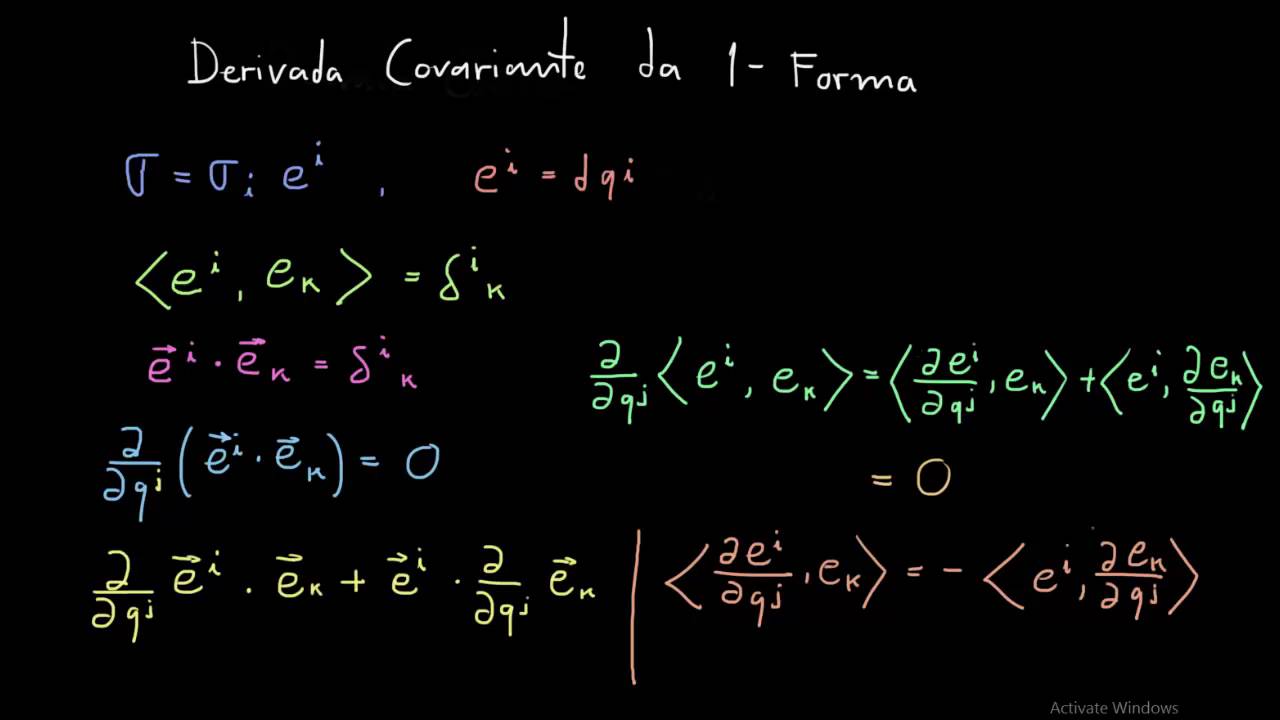 Derivada Covariante da 1-Forma
σ = σᵢ eⁱ , eⁱ = dqⁱ
⟨eⁱ, eₖ⟩ = δⁱₖ
e⃗ⁱ · e⃗ₖ = δⁱₖ
∂/∂qʲ ⟨eⁱ, eₖ⟩ = ⟨∂eⁱ/∂qʲ, eₖ⟩ + ⟨eⁱ, ∂eₖ/∂qʲ⟩
∂/∂qʲ (e⃗ⁱ · e⃗ₖ) = 0
= 0
∂/∂qʲ e⃗ⁱ · e⃗ₖ + e⃗ⁱ · ∂/∂qʲ e⃗ₖ
⟨∂eⁱ/∂qʲ, eₖ⟩ = - ⟨eⁱ, ∂eₖ/∂qʲ⟩
Activate Windows